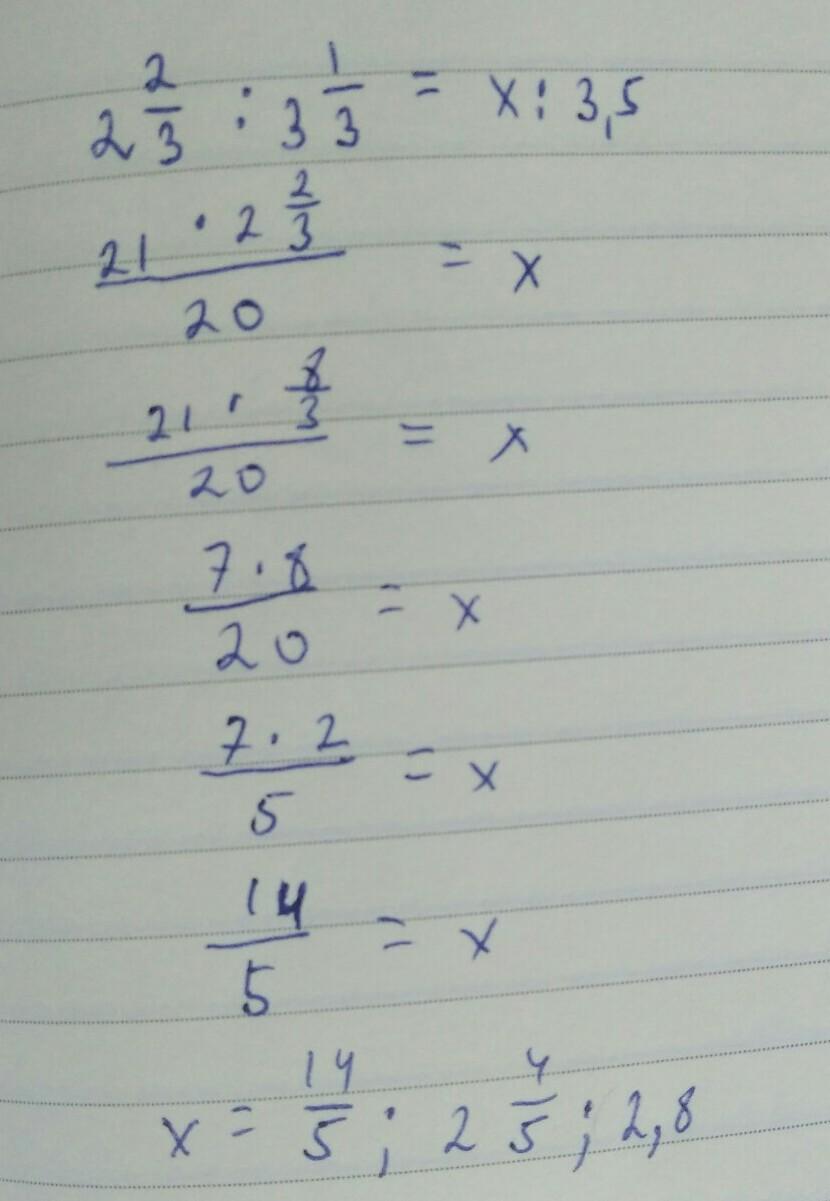 2 2/3 : 3 1/3 = x : 3,5
(21 · 2 2/3)/20 = x
(21 · 8/3)/20 = x
(7 · 8)/20 = x
(7 · 2)/5 = x
14/5 = x
x = 14/5 ; 2 4/5 ; 2,8